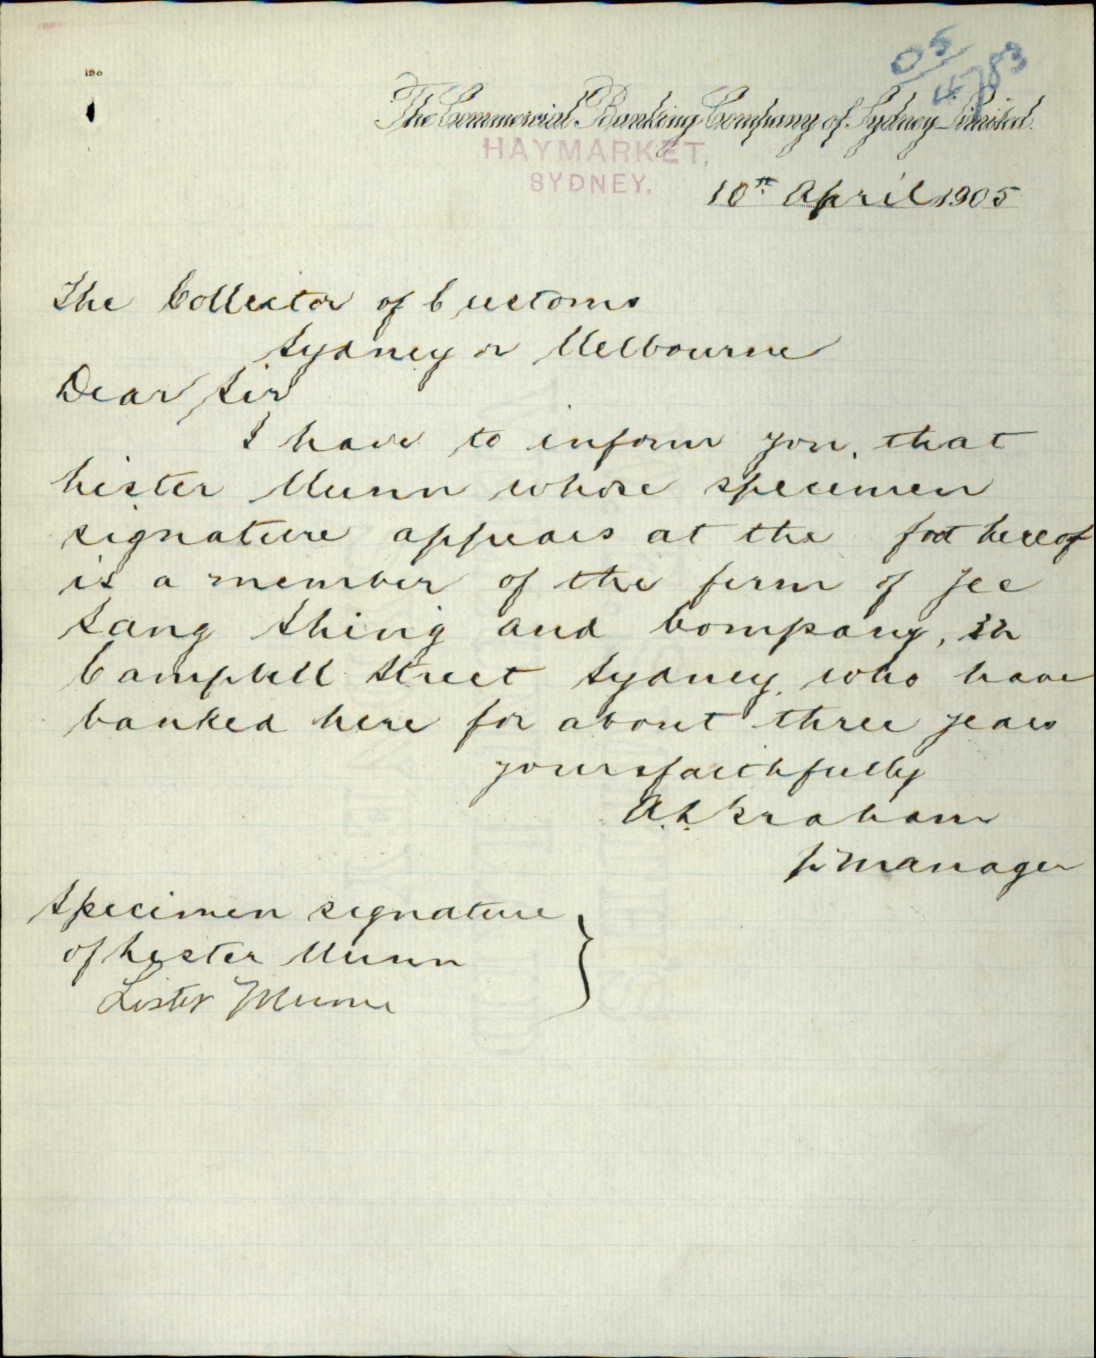 05/4783
The Commercial Banking Company of Sydney Limited.
HAYMARKET,
SYDNEY.
10th April 1905
The Collector of Customs
Sydney or Melbourne
Dear Sir
I have to inform you, that
Lister Munn whose specimen
signature appears at the foot hereof
is a member of the firm of Jee
Sang Shing and Company, in
Campbell Street Sydney, who have
banked here for about three years
yours faithfully
A. L. Graham
pr Manager
Specimen signature
of Lister Munn
Lister Munn